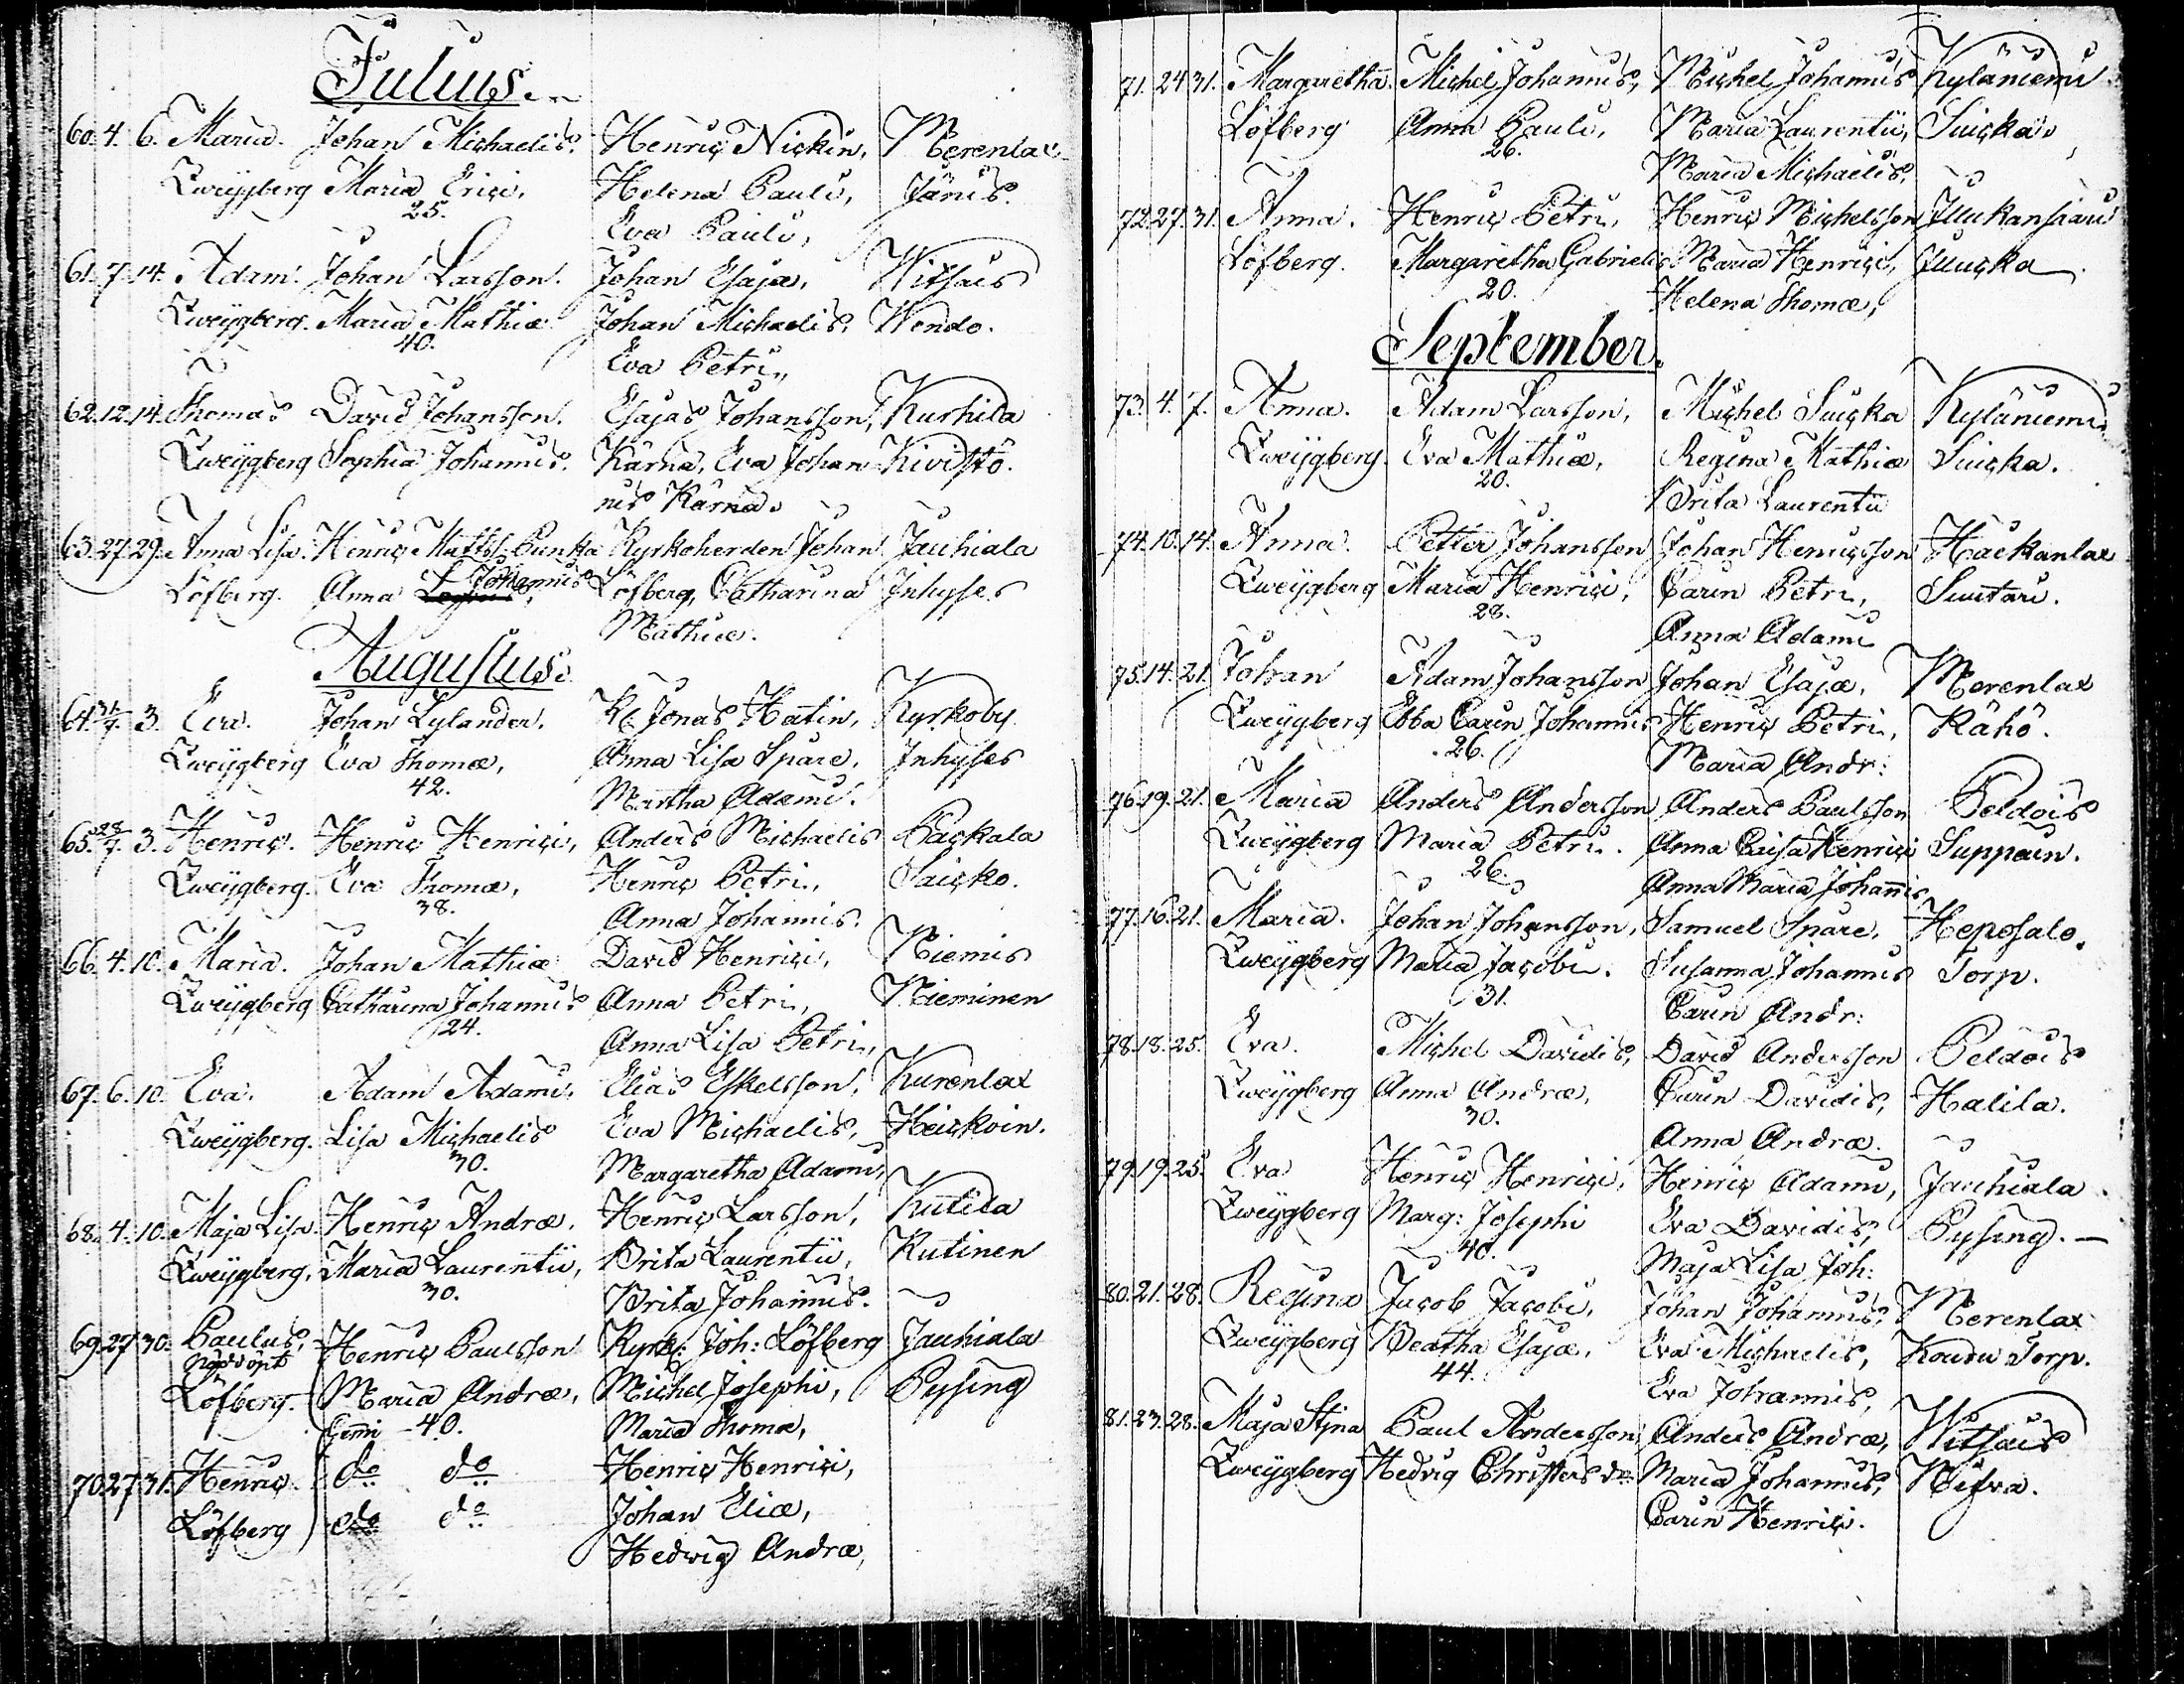 Julius.
60. 4. 6. Maria. Johan Michaelis. Henric Nickin, Merenlax
Zweygberg Maria Erici, Helena Pauli, Järvis.
25. Eva Pauli,
61. 7. 14. Adam. Johan Larsson. Johan Esajæ, Witsais
Zweygberg. Maria Mathiæ Johan Michaelis, Wendo.
40. Eva Petri,
62. 12. 14. Thomas David Johansson. Esajas Johansson, Kurhila
Zweygberg Sophia Johannis. Kärnä, Eva Johan Kivistö.
nis Kärnä.
63. 27. 29. Anna Lisa. Henric Mattss. Punka Kyrkoherden Johan Jauhiala
Löfberg. Anna Johannis, Löfberg, Catharina Inhyses
Mathiæ.
Augustus.
64. 31/7. 3. Eva. Johan Lylander, Kl. Jonas Hatin, Kyrkoby
Zweygberg Eva Thomæ, Anna Lisa Spare, Inhyses
42. Martha Adami.
65. 28/7. 3. Henric. Henric Henrici, Anders Michaelis Packala
Zweygberg. Eva Thomæ, Henric Petri, Saicko.
38. Anna Johannis.
66. 4. 10. Maria. Johan Mathiæ David Henrici, Niemis
Zweygberg Catharina Johannis Anna Petri, Nieminen
24. Anna Lisa Petri,
67. 6. 10. Eva. Adam Adami, Elias Eskelsson, Kurenlax
Zweygberg. Lisa Michaelis Eva Michaelis, Heickoin.
30. Margaretha Adami,
68. 4. 10. Maja Lisa. Henric Andræ. Henric Larsson, Kutila
Zweygberg. Maria Laurentii, Brita Laurentii, Kutinen
30. Brita Johannis.
69. 27. 30. Paulus, Henric Paulsson Kyrkh: Joh: Löfberg Jauhiala
nöddöpt
Löfberg. Maria Andræ, Michel Josephi, Pysing
Gemi - 40. Maria Thomæ,
70. 27. 31. Henric do do Henric Henrici,
Löfberg do do Johan Eliæ,
Hedwig Andræ,
71. 24. 31. Margaretha. Michel Johannis, Michel Johannis Kyläniemi
Löfberg Anna Pauli, Maria Laurentii, Suicka.
26. Maria Michaelis,
72. 27. 31. Anna. Henric Petri, Henric Michelsson Illukansaari
Löfberg. Margaretha Gabrielis Maria Henrici, Illucka.
20. Helena Thomæ,
September.
73. 4. 7. Anna. Adam Larsson, Michel Suicka Kyläniemi
Zweygberg. Eva Mathiæ, Regina Mathiæ Suicka.
20. Brita Laurentii
74. 10. 14. Anna. Petter Johansson Johan Henricsson Häckanlax
Zweygberg Maria Henrici, Carin Petri, Suutari.
28. Anna Adami
75. 14. 21. Johan Adam Johansson Johan Esajæ, Merenlax
Zweygberg Ebba Carin Johannis Henric Petri, Kähö.
26. Maria Andr:
76. 19. 21. Maria Anders Andersson Anders Paulsson Peldois
Zweygberg Maria Petri. Anna Caisa Henrici Suppoin.
26. Anna Maria Johannis
77. 16. 21. Maria. Johan Johansson, Samuel Spare, Heposalo.
Zweygberg Maria Jacobi. Susanna Johannis Torp.
31. Carin Andr:
78. 18. 25. Eva. Michel Davidis, David Andersson Peldois
Zweygberg Anna Andræ, Carin Davidis, Halila.
30. Anna Andræ.
79. 19. 25. Eva Henric Henrici, Henric Adami, Jauhiala
Zweygberg Marg: Josephi Eva Davidis, Pysing.
40. Maja Lisa Joh:
80. 21. 28. Regina Jacob Jacobi, Johan Johannis, Merenlax
Zweygberg Beatha Esajæ. Eva Michaelis, Kouvu Torp.
44. Eva Johannis,
81. 23. 28. Maja Stjna Paul Andersson, Anders Andræ, Witsais
Zweygberg Hedvig Christersdr Maria Johannis,
Carin Henrici.